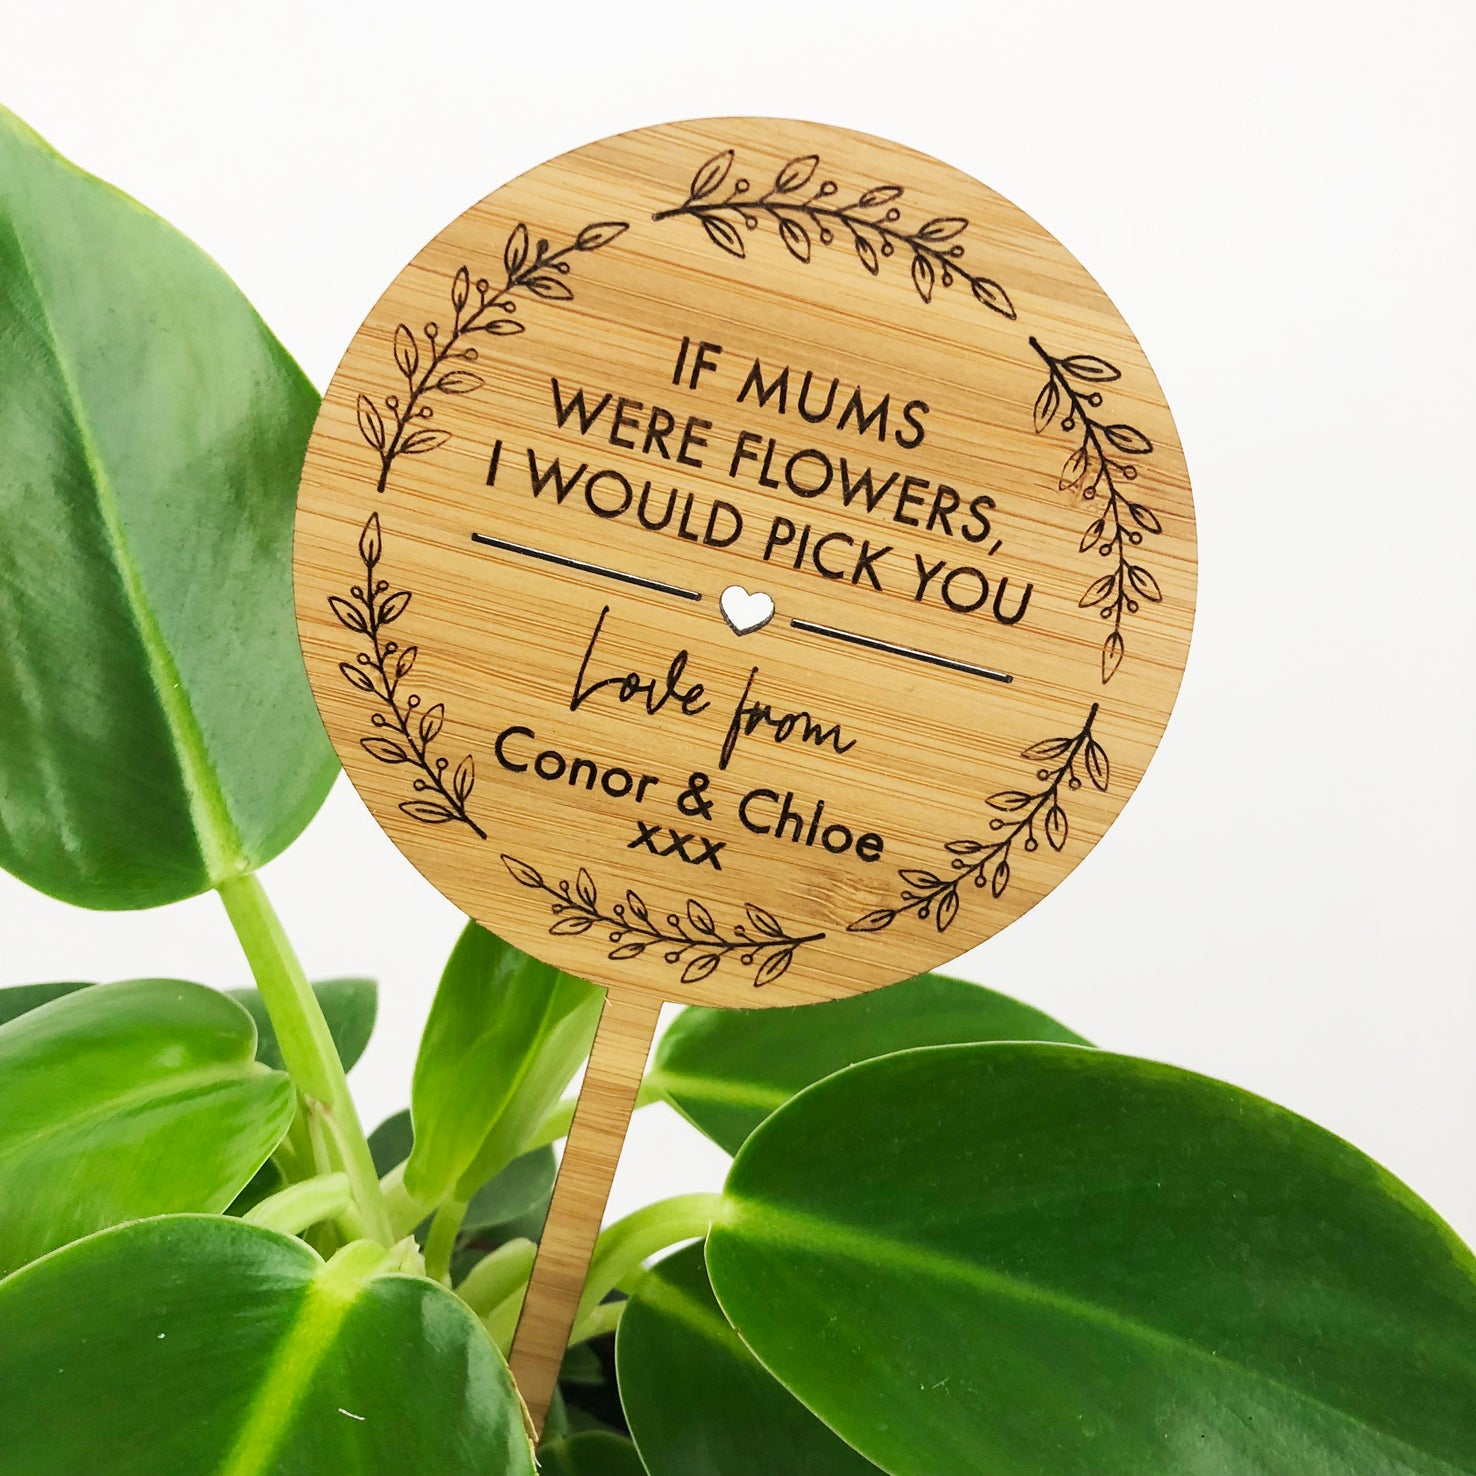 IF MUMS
WERE FLOWERS,
I WOULD PICK YOU
Love from
Conor & Chloe
xxx